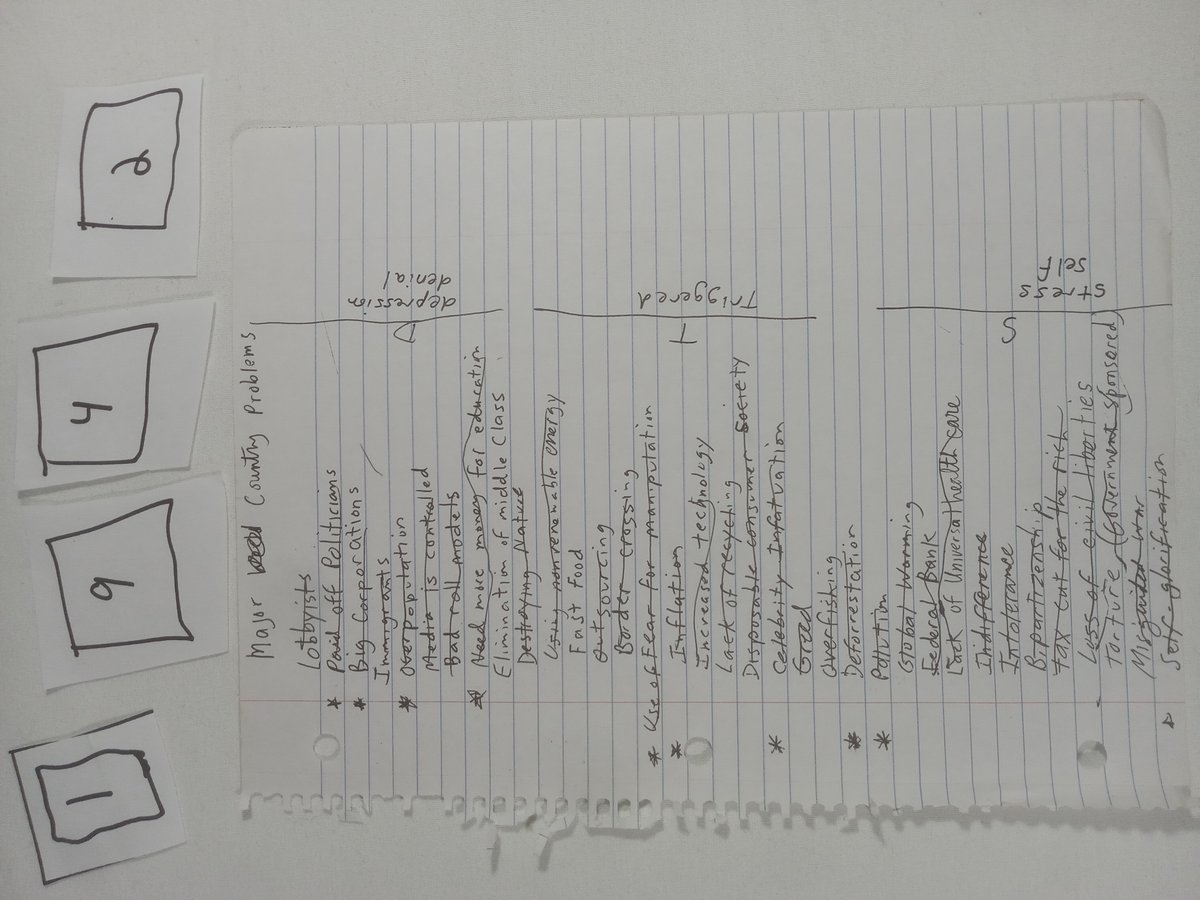 1
9
4
2
Major Country Problems
Lobbyists
* Paid off Politicians
* Big Corporations
Immigrants
* Overpoputation
Media is controlled
Bad roll models
* Need more money for education
Elimination of middle Class
Destroying Nature
Using nonrenewable energy
Fast Food
Outsourcing
Border crossing
* Use of Fear for manputation
* Inflation
Increased technology
Lack of recycling
Disposable consumer Society
* Celebrity Infatuation
Greed
Overfishing
* Deforrestation
* Pollution
Global Warming
Federal Bank
Lack of Univeral health care
Indifference
Intolerance
Bipartizenship
tax cut for the rich
- Loss of civil liberties
torture (Government Sponsored)
Misguided War
Self-glorification
D
depression
denial
T
Triggered
S
stress
self